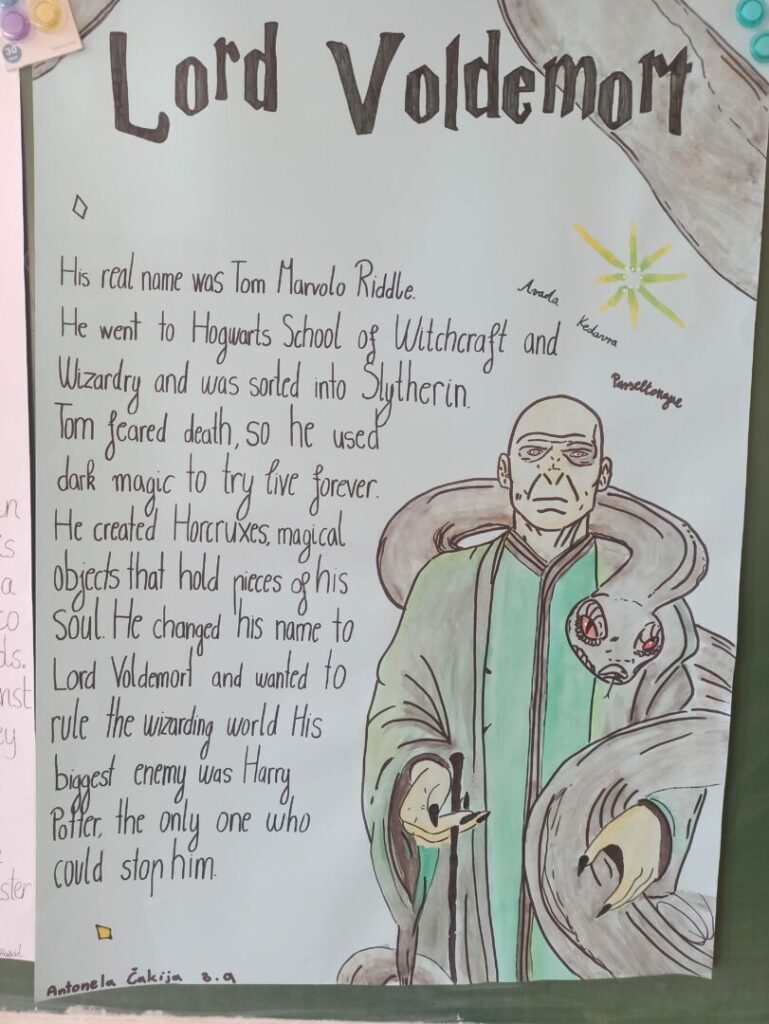 30
Lord Voldemort
Avada
Kedavra
Parseltongue
His real name was Tom Marvolo Riddle.
He went to Hogwarts School of Witchcraft and
Wizardry and was sorted into Slytherin.
Tom feared death, so he used
dark magic to try live forever.
He created Horcruxes, magical
objects that hold pieces of his
soul. He changed his name to
Lord Voldemort and wanted to
rule the wizarding world His
biggest enemy was Harry
Potter, the only one who
could stop him.
Antonela Čakija 3.a